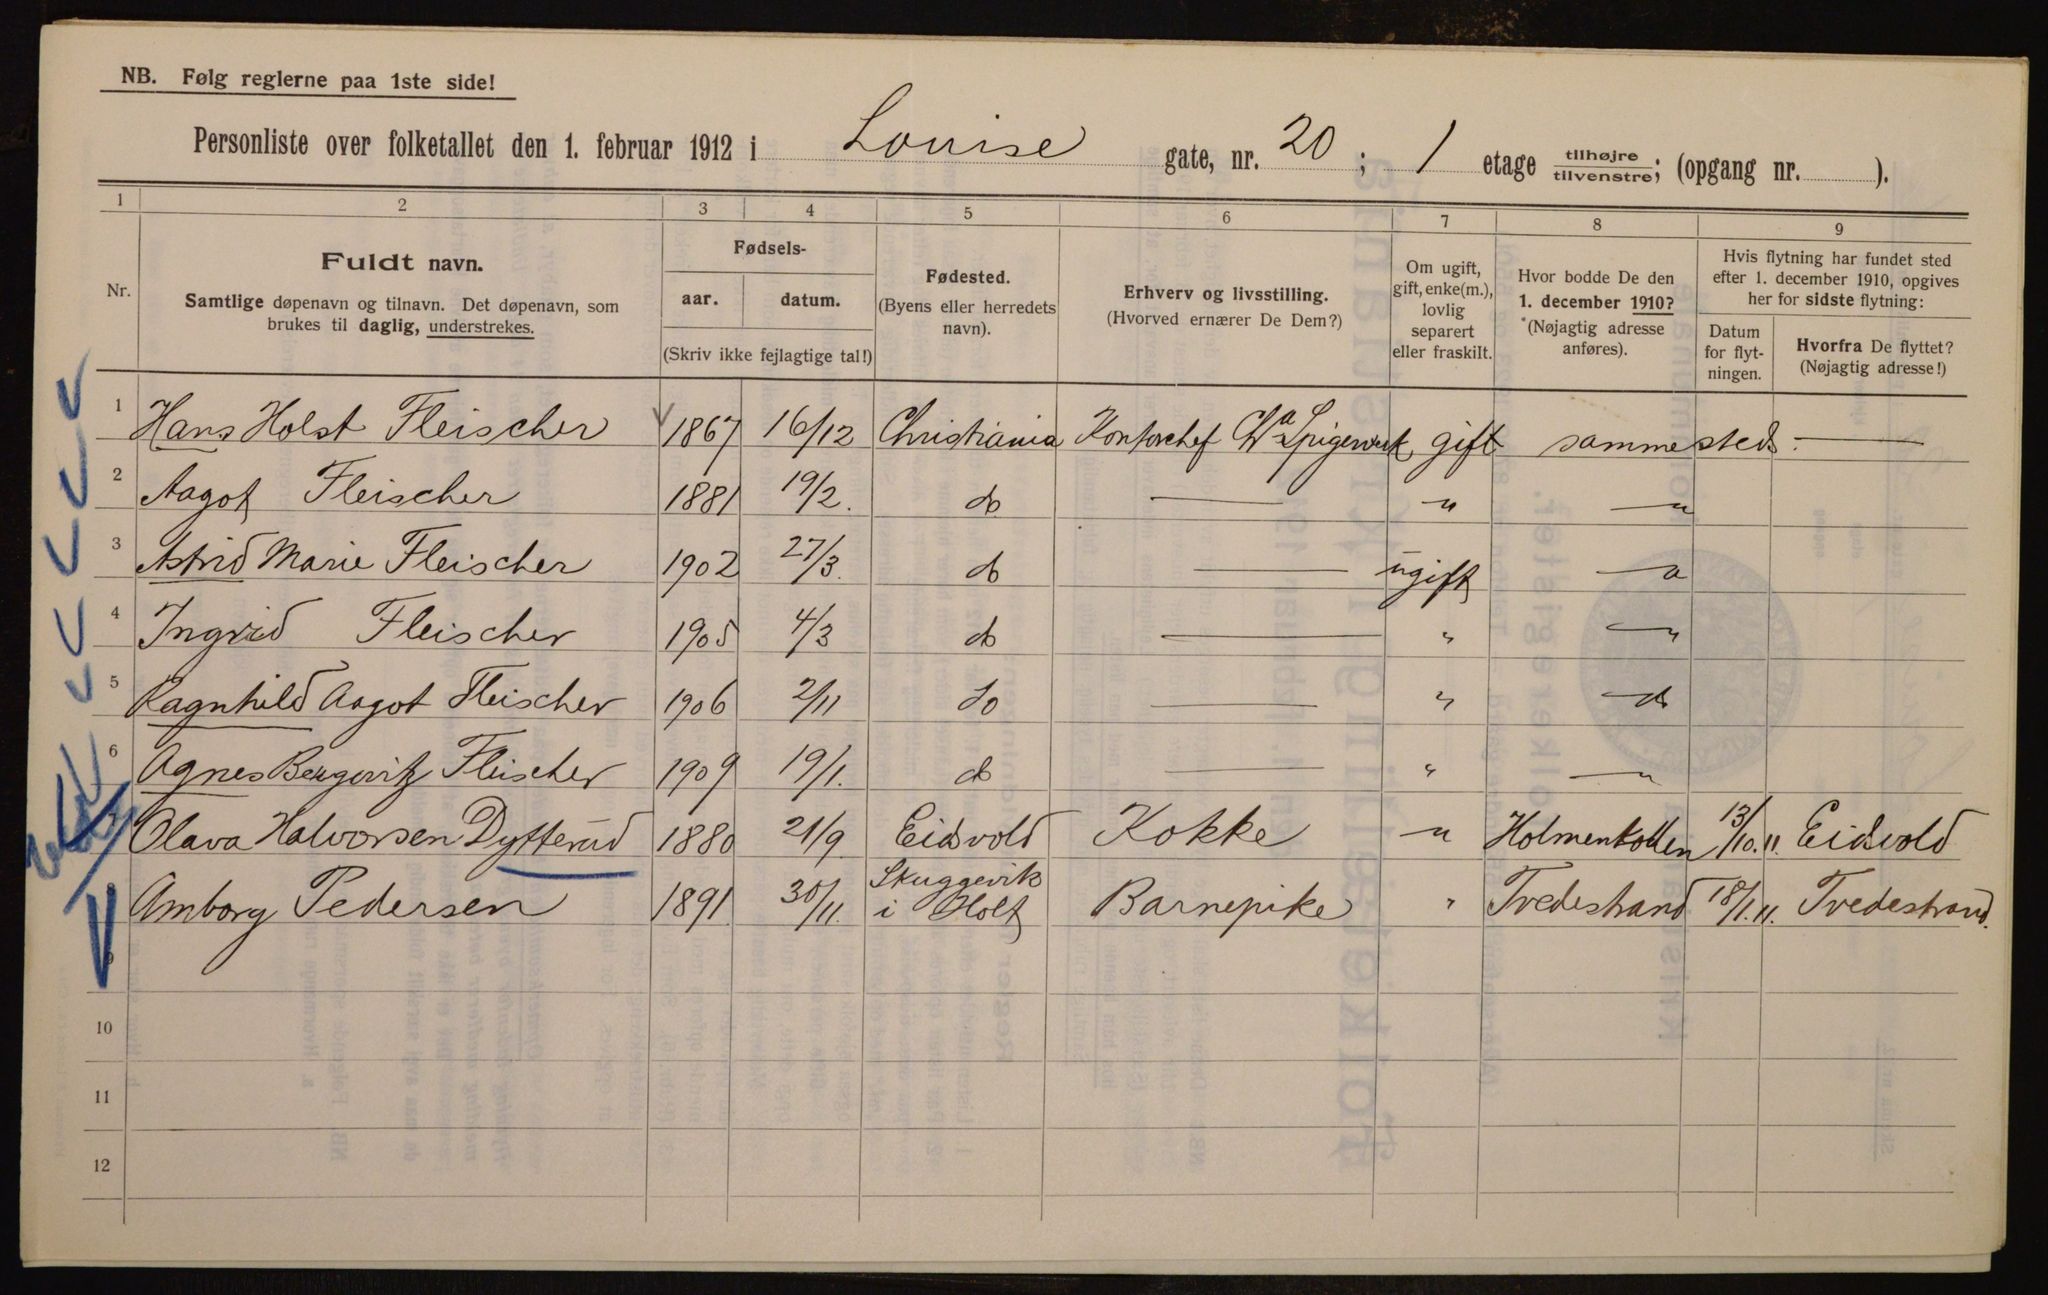 NB. Følg reglerne paa 1ste side!
Personliste over folketallet den 1. februar 1912 i Louise gate, nr. 20; 1 etage tilhøjre tilvenstre; (opgang nr. ).
1 2 3 4 5 6 7 8 9
Nr.
Fuldt navn.
Samtlige døpenavn og tilnavn. Det døpenavn, som
brukes til daglig, understrekes.
Fødsels-
aar. datum.
(Skriv ikke fejlagtige tal!)
Fødested.
(Byens eller herredets
navn).
Erhverv og livsstilling.
(Hvorved ernærer De Dem?)
Om ugift,
gift, enke(m.),
lovlig
separert
eller fraskilt.
Hvor bodde De den
1. december 1910?
(Nøjagtig adresse
anføres).
Hvis flytning har fundet sted
efter 1. december 1910, opgives
her for sidste flytning:
Datum
for flyt-
ningen.
Hvorfra De flyttet?
(Nøjagtig adresse!)
1 Hans Holst Fleischer 1867 16/12 Christiania Kontorchef Chra Spigerverk gift sammesteds. —
2 Aagot Fleischer 1881 19/2. do — " — "
3 Astrid Marie Fleischer 1902 27/3. do — ugift — "
4 Ingrid Fleischer 1905 4/3 do — " — "
5 Ragnhild Aagot Fleischer 1906 2/11 do — " — do
6 Agnes Fleischer 1909 19/1. do — " — "
Olava Halvorsen Dytterud 1880 21/9. Eidsvold Kokke — " Holmenkollen 13/10. 11. Eidsvold
8 Amborg Pedersen 1891. 30/11. Skuggevik
i Holt Barnepike " Tvedestrand 18/1. 11. Tvedestrand.
9
10
11
12